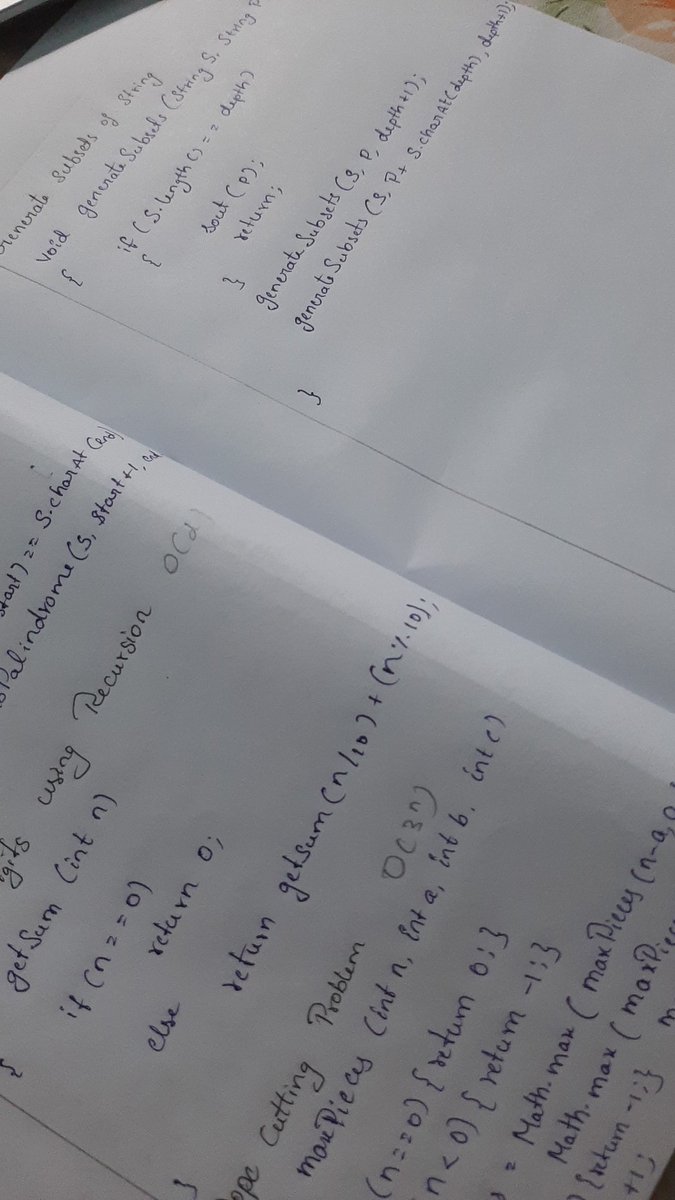 Generate Subsets of String
void generateSubsets (String S, String P
{
if (S.length() == depth)
{
sout (P);
return;
}
generateSubsets (S, P, depth+1);
generateSubsets (S, P+ S.charAt(depth), depth+1);
}
start) == S.charAt (end)
isPalindrome (S, start+1, end
digits using Recursion O(d)
getSum (int n)
{
if (n==0)
return 0;
else
return getSum (n/10) + (n%10);
}
Rope Cutting Problem O(3n)
maxPieces (int n, int a, int b, int c)
(n==0) { return 0; }
n<0) { return -1; }
= Math.max ( maxPieces (n-a, a,
Math.max ( maxPieces
{return -1;}
+1;